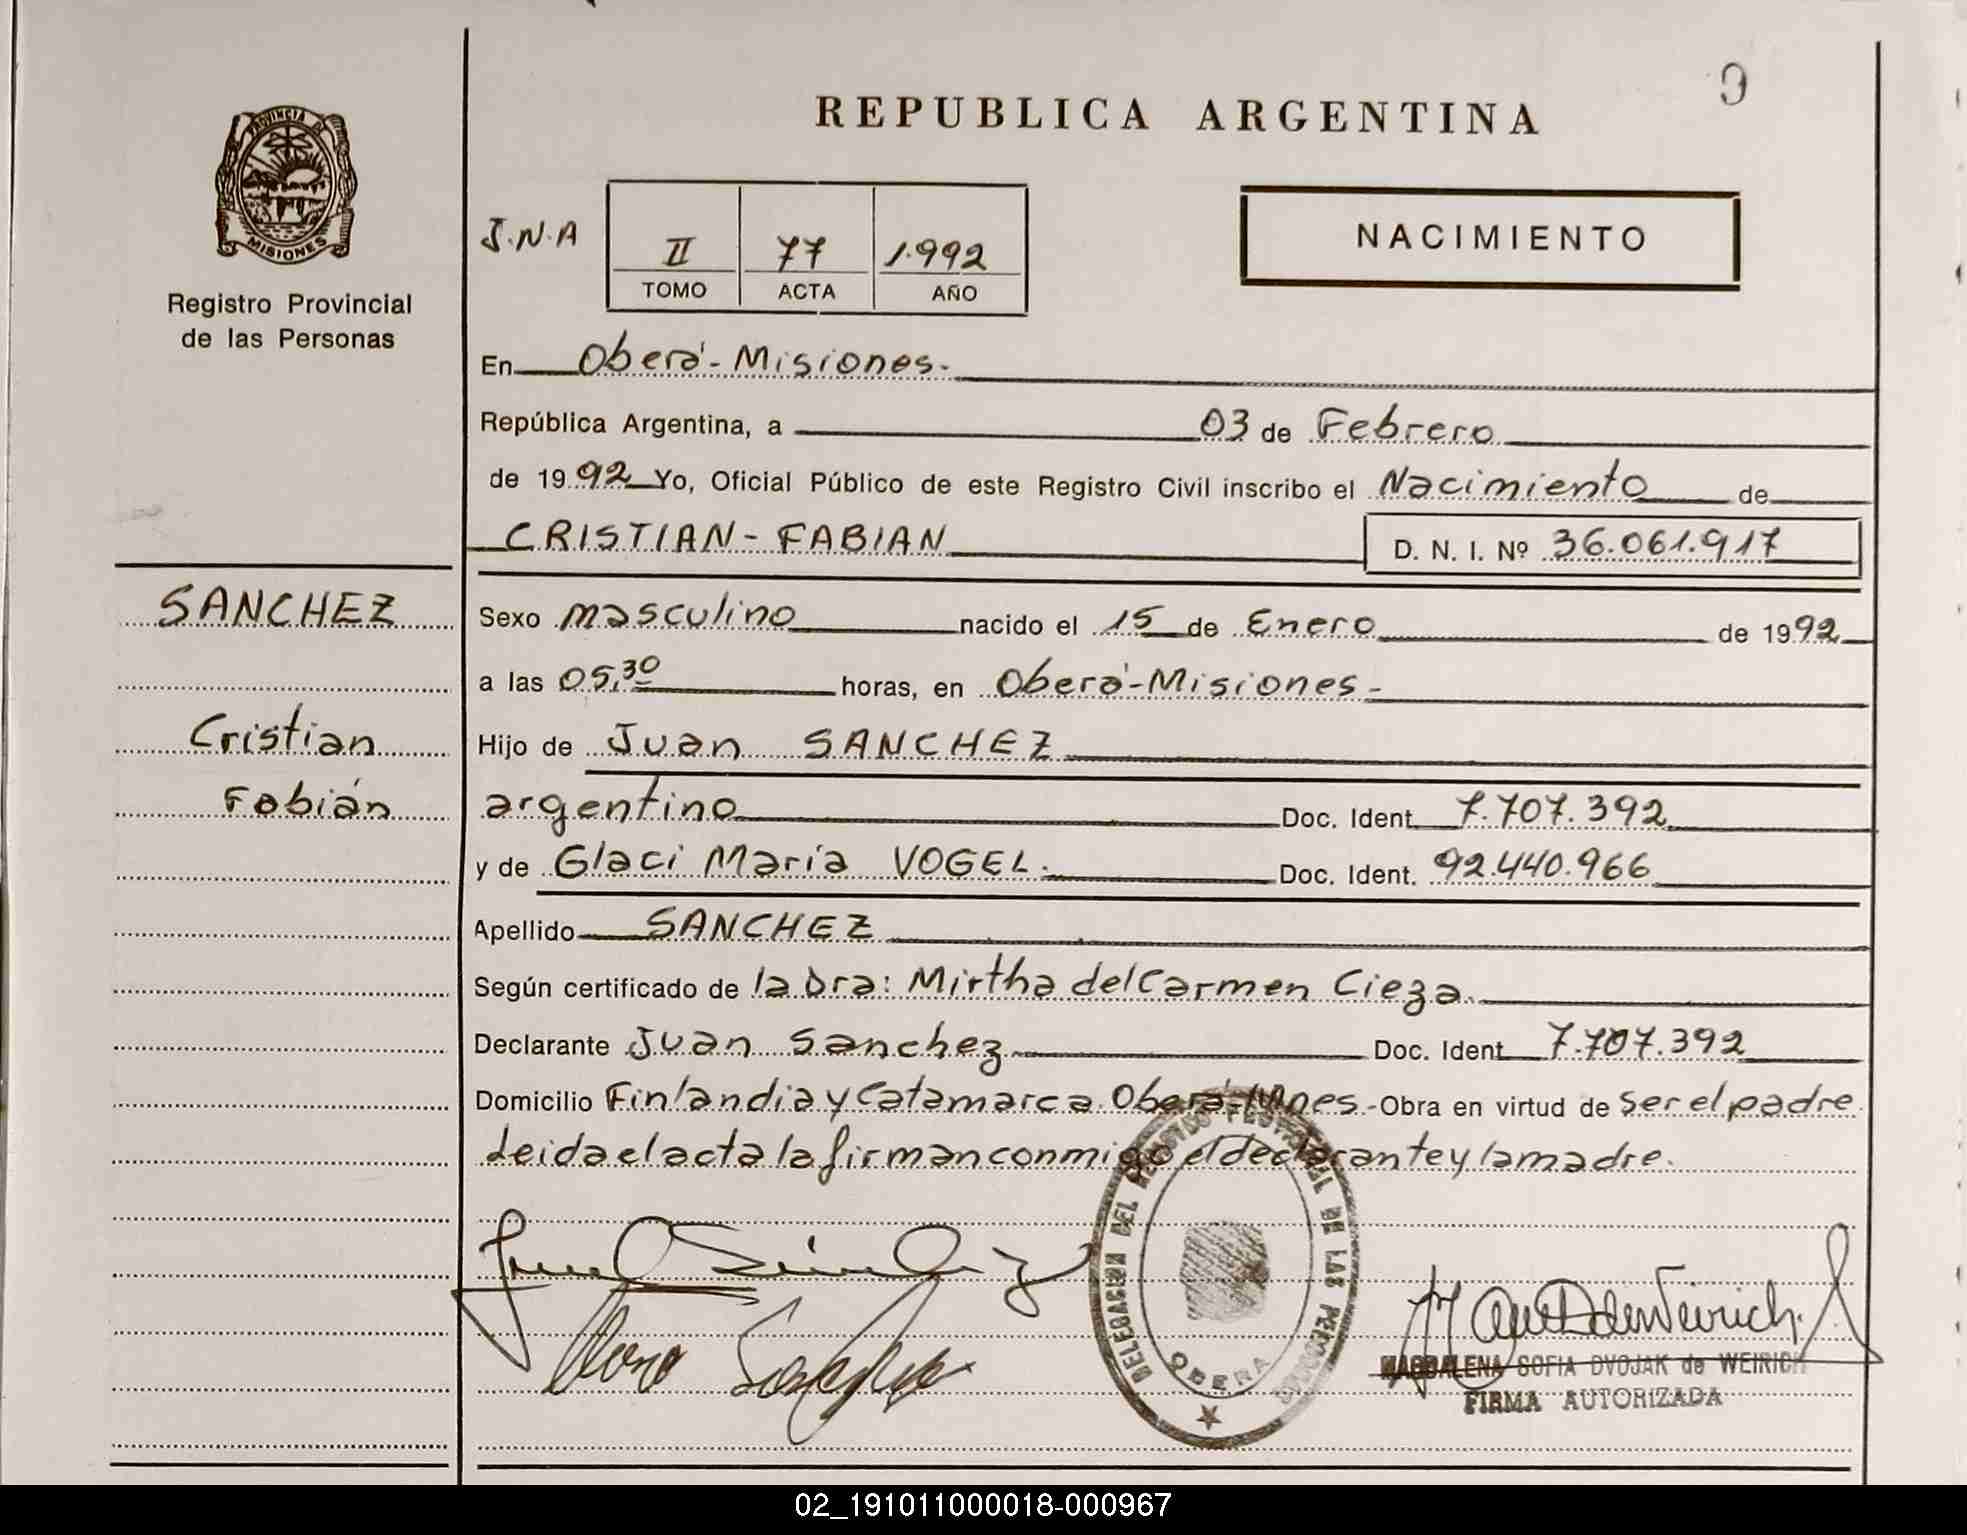 REPUBLICA ARGENTINA
PROVINCIA DE MISIONES
Registro Provincial
de las Personas
J.N.A
II 77 1.992
TOMO ACTA AÑO
NACIMIENTO
En Oberá-Misiones.
República Argentina, a 03 de Febrero
de 1992 Yo, Oficial Público de este Registro Civil inscribo el Nacimiento de
CRISTIAN-FABIAN D. N. I. Nº 36.061.917
SANCHEZ
Cristian
Fabián
Sexo masculino nacido el 15 de Enero de 1992
a las 05,30 horas, en Oberá-Misiones-
Hijo de Juan SANCHEZ
argentino Doc. Ident. 7.707.392
y de Glaci María VOGEL. Doc. Ident. 92.440.966
Apellido SANCHEZ
Según certificado de la Dra: Mirtha del Carmen Cieza.
Declarante Juan Sanchez Doc. Ident. 7.707.392
Domicilio Finlandia y Catamarca Oberá-Mnes.-Obra en virtud de ser el padre
Leida el acta la firman conmigo el declarante y la madre.
DELEGACION DEL REGISTRO PROVINCIAL DE LAS PERSONAS
OBERA
MAGDALENA SOFIA DVOJAK de WEIRICH
FIRMA AUTORIZADA
02_191011000018-000967